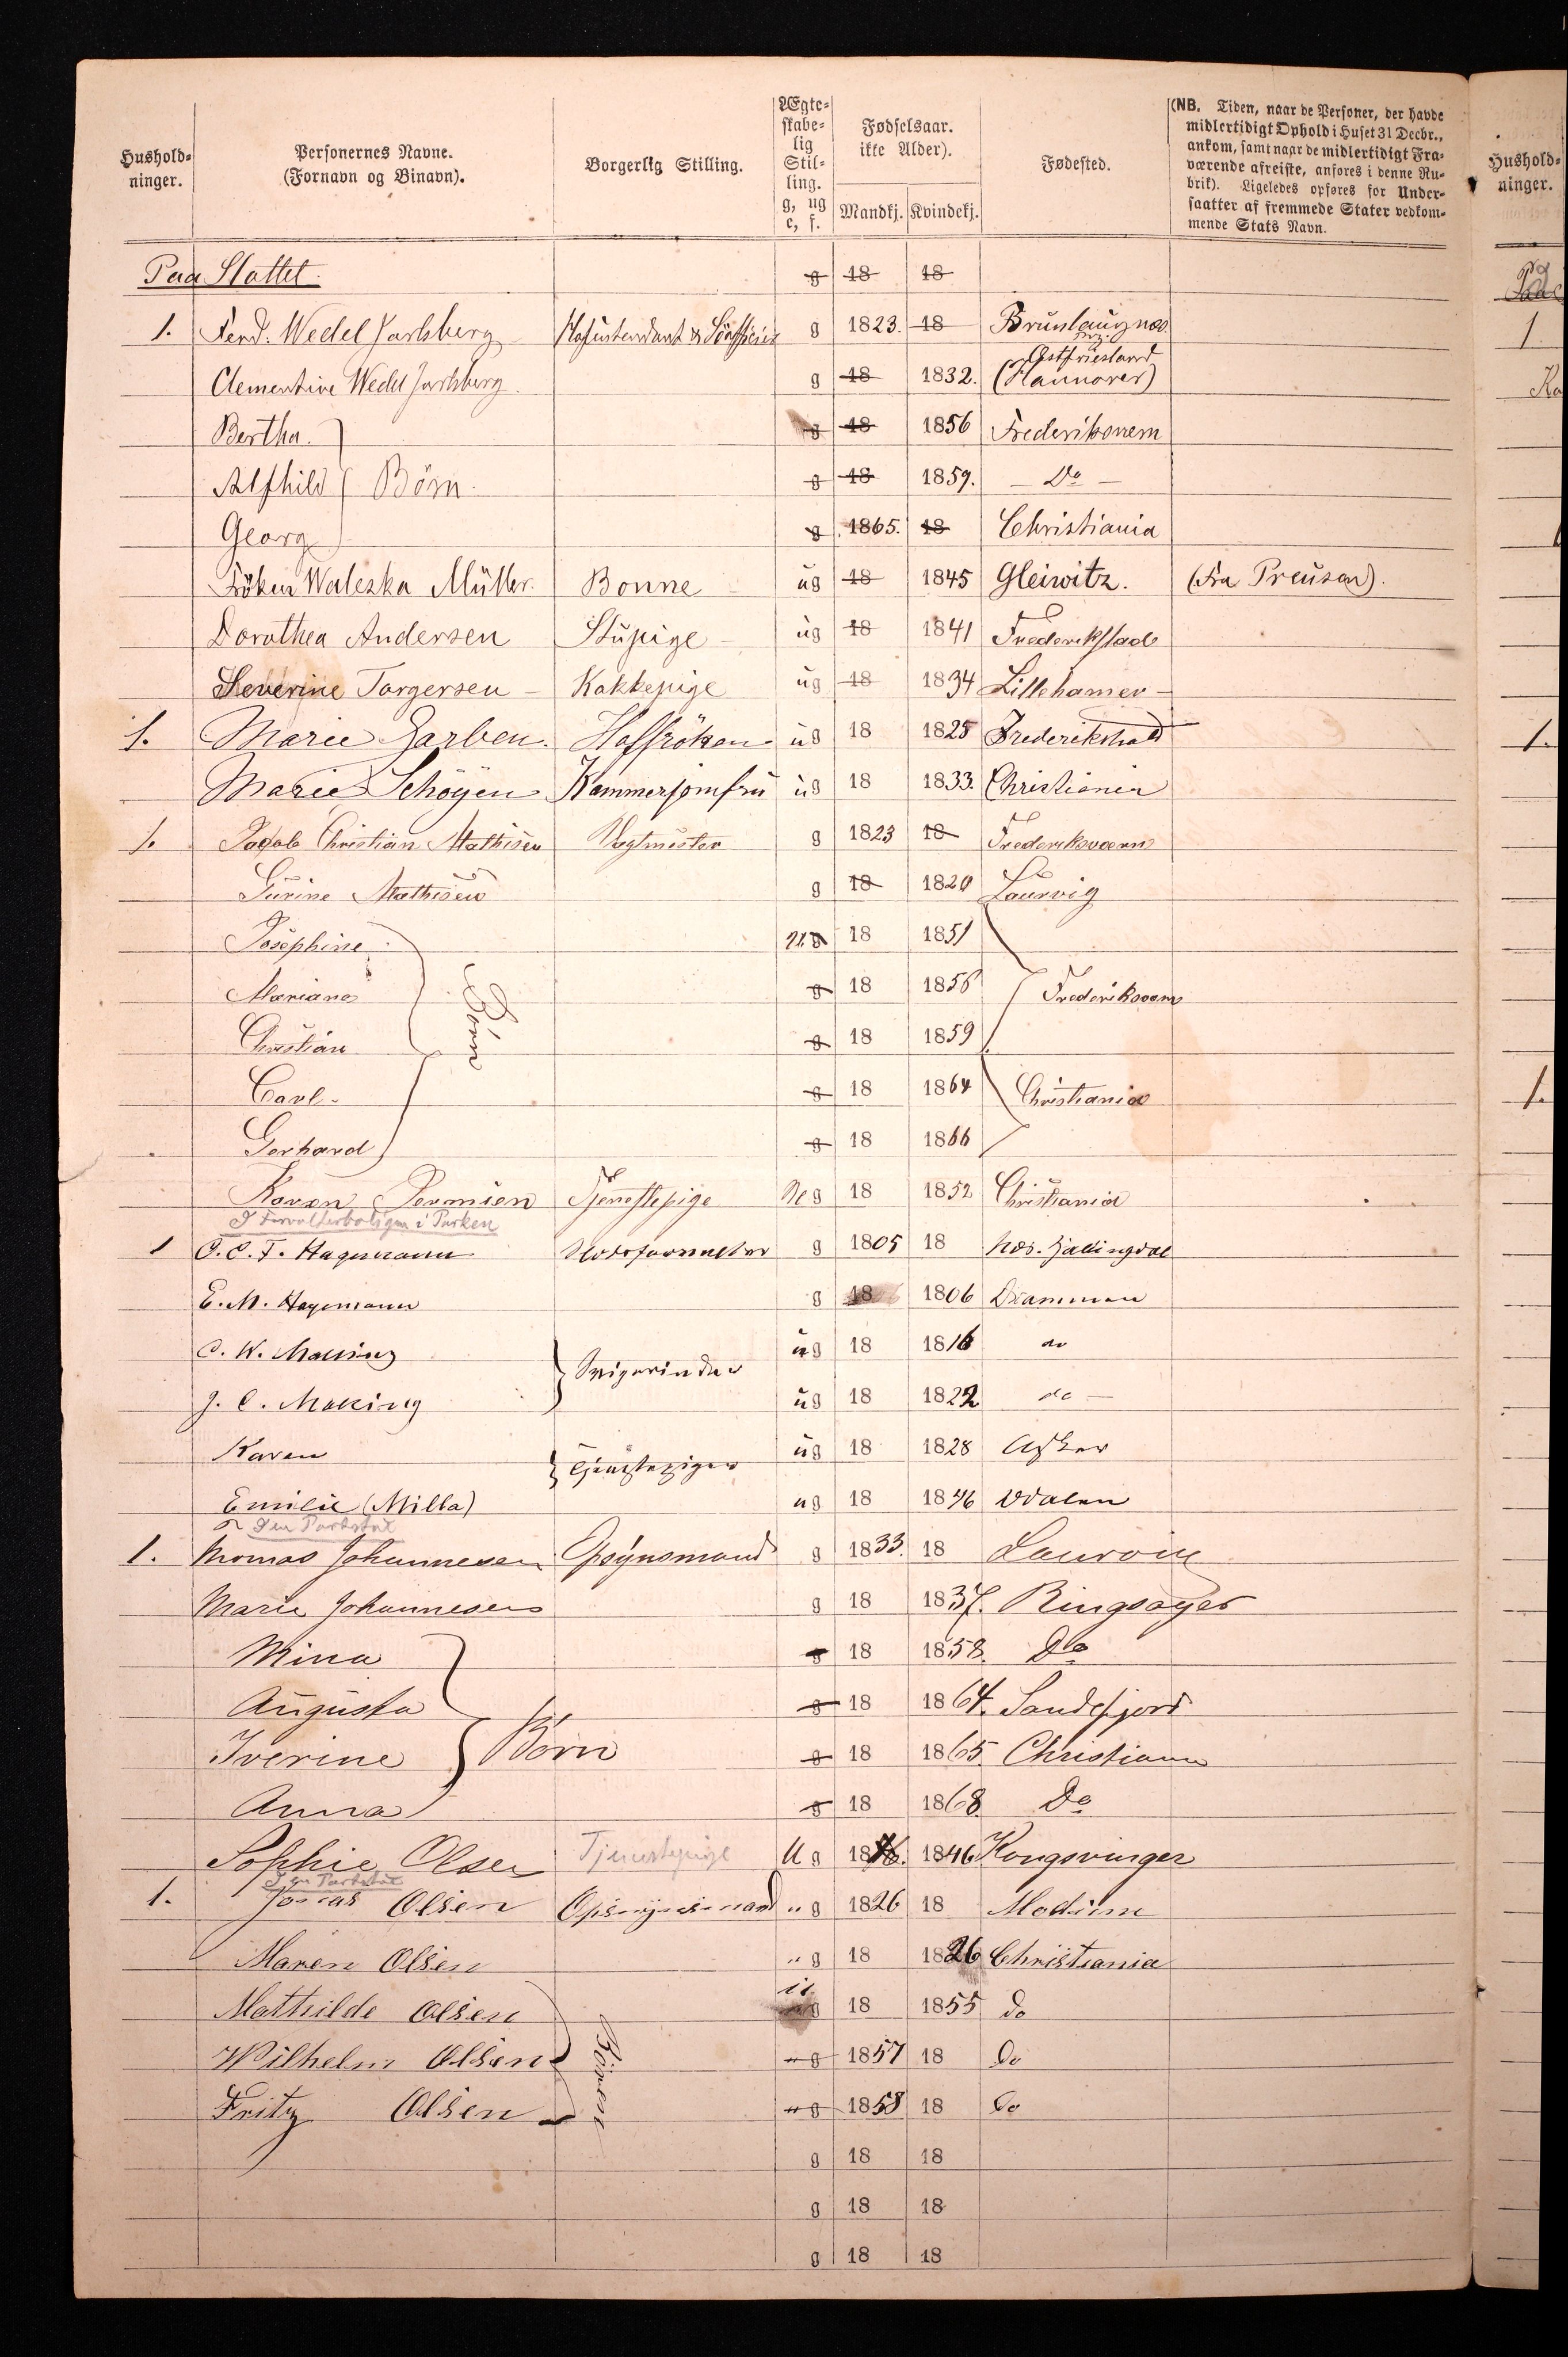 Hushold-
ninger.
Personernes Navne.
(Fornavn og Binavn).
Borgerlig Stilling.
Ægte-
skabe-
lig
Stil-
ling.
g, ug
e, f.
Fødselsaar.
ikke Alder).
Mandkj. Kvindekj.
Fødested.
(NB. Tiden, naar de Personer, der havde
midlertidigt Ophold i Huset 31 Decbr.,
ankom, samt naar de midlertidigt Fra-
værende afreiste, anføres i denne Ru-
brik). Ligeledes opføres for Under-
saatter af fremmede Stater vedkom-
mende Stats Navn.
Hushold-
ninger.
Paa Slottet g 18 18
1. Ferd. Wedel Jarlsberg Hofintendant & g 1823. 18 Brunlaugnæs 1
Ostfriesland
Clementine Wedel Jarlsberg g 18 1832. (Hannover)
Bertha g 18 1856 Frederiksværn
Alfhild Børn g 18 1859. Do
Georg g 1865. 18 Christiania
Fröken Waleska Müller. Bonne ug 18 1845 Gleiwitz. (Fra Preusen).
Dorothea Andersen Stupige ug 18 1841 Frederikstad
Severine Torgersen Kokkepige ug 18 1834 Lillehamer
1. Marie Garben. Hoffröken ug 18 1825 Frederikshald 1.
Marie Schøyen Kammerjomfru ug 18 1833. Christiania
1. Jacob Christian Mathisen Vagtmester g 1823 18 Frederiksværn
Gurine Mathisen g 18 1820 Laurvig
Josephine ug 18 1851
Mariane g 18 1856 Frederiksværn
Christian Børn g 18 1859
Carl g 18 1864 Christiania 1.
Gerhard g 18 1866
Karen Tjenestepige Ug 18 1852 Christiania
I Forvalterboligen i Parken
1 O. C. F. Hagemann Slotsforvalter g 1805 18 Næs. Hallingdal
E. M. Hagemann g 18 1806 Drammen
C. W. Malling ug 18 1816 do
Svigerinder
J. C. Malling ug 18 1822 do
Karen ug 18 1828 Asker
Tjenestepiger
Emilie (Milla) ug 18 1846 Odalen
I en Parkstue
1. Thomas Johannesen Opsynsmand g 1833. 18 Laurvig
Marie Johannesen g 18 1837. Ringsager
Mina g 18 1858. Do
Augusta g 18 1864. Sandefjord
Iverine Børn g 18 1865. Christiania
Anna g 18 1868. Do
Sophie Olsen Tjenestepige Ug 18 1846 Kongsvinger
I en Parkstue
1. Jonas Olsen Opsynsmand " g 1826 18 Modum
Maren Olsen " g 18 1826 Christiania
Mathilde Olsen u g 18 1855 do
Wilhelm Olsen Börn " g 1857 18 Do
Fritz Olsen " g 1858 18 Do
g 18 18
g 18 18
g 18 18